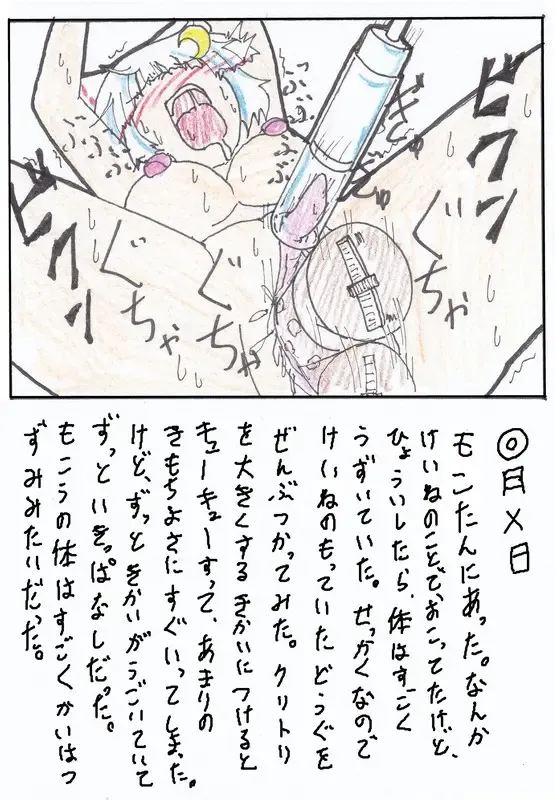 ビクン
ビクン
ぐちゃ
ぐちゃ
ぐちゃ
◎月×日
もこたんにあった。なんか
けいねのことで、おこってたけど、
ひょういしたら、体はすごく
うずいていた。せっかくなので
けいねのもっていたどうぐを
ぜんぶつかってみた。クリトリ
を大きくするきかいにつけると
キューキューすって、あまりの
きもちよさにすぐいってしまった。
けど、ずっときかいがうごいていて
ずっといきっぱなしだった。
もこうの体はすごくかいはつ
ずみみたいだった。